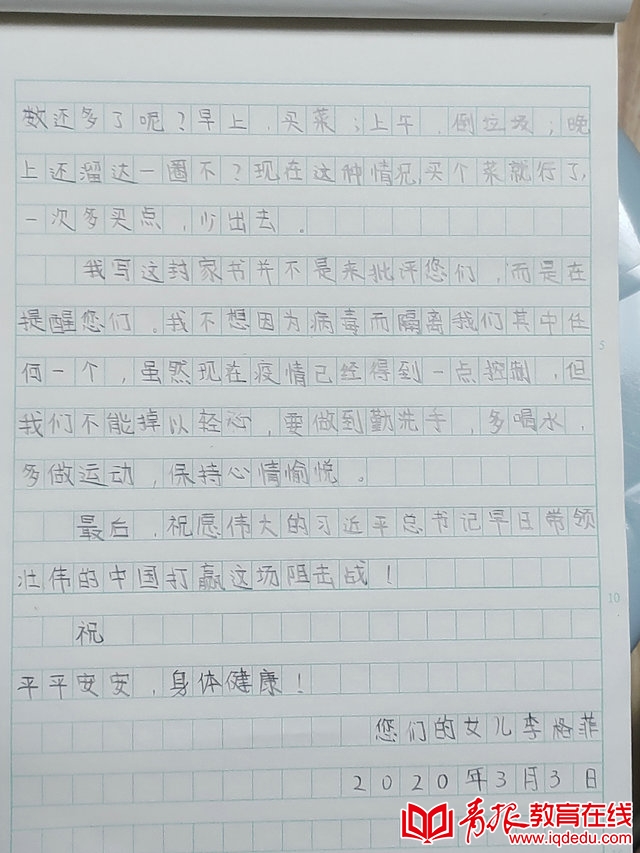 数还多了呢？早上，买菜；上午，倒垃圾；晚
上还溜达一圈不？现在这种情况，买个菜就行了，
一次多买点，少出去。
我写这封家书并不是来批评您们，而是在
提醒您们。我不想因为病毒而隔离我们其中任
何一个，虽然现在疫情已经得到一点控制，但
我们不能掉以轻心，要做到勤洗手，多喝水，
多做运动，保持心情愉悦。
最后，祝愿伟大的习近平总书记早日带领
壮伟的中国打赢这场阻击战！
祝
平平安安，身体健康！
您们的女儿李格菲
2020年3月3日
5
10
青报教育在线
www.iqdedu.com